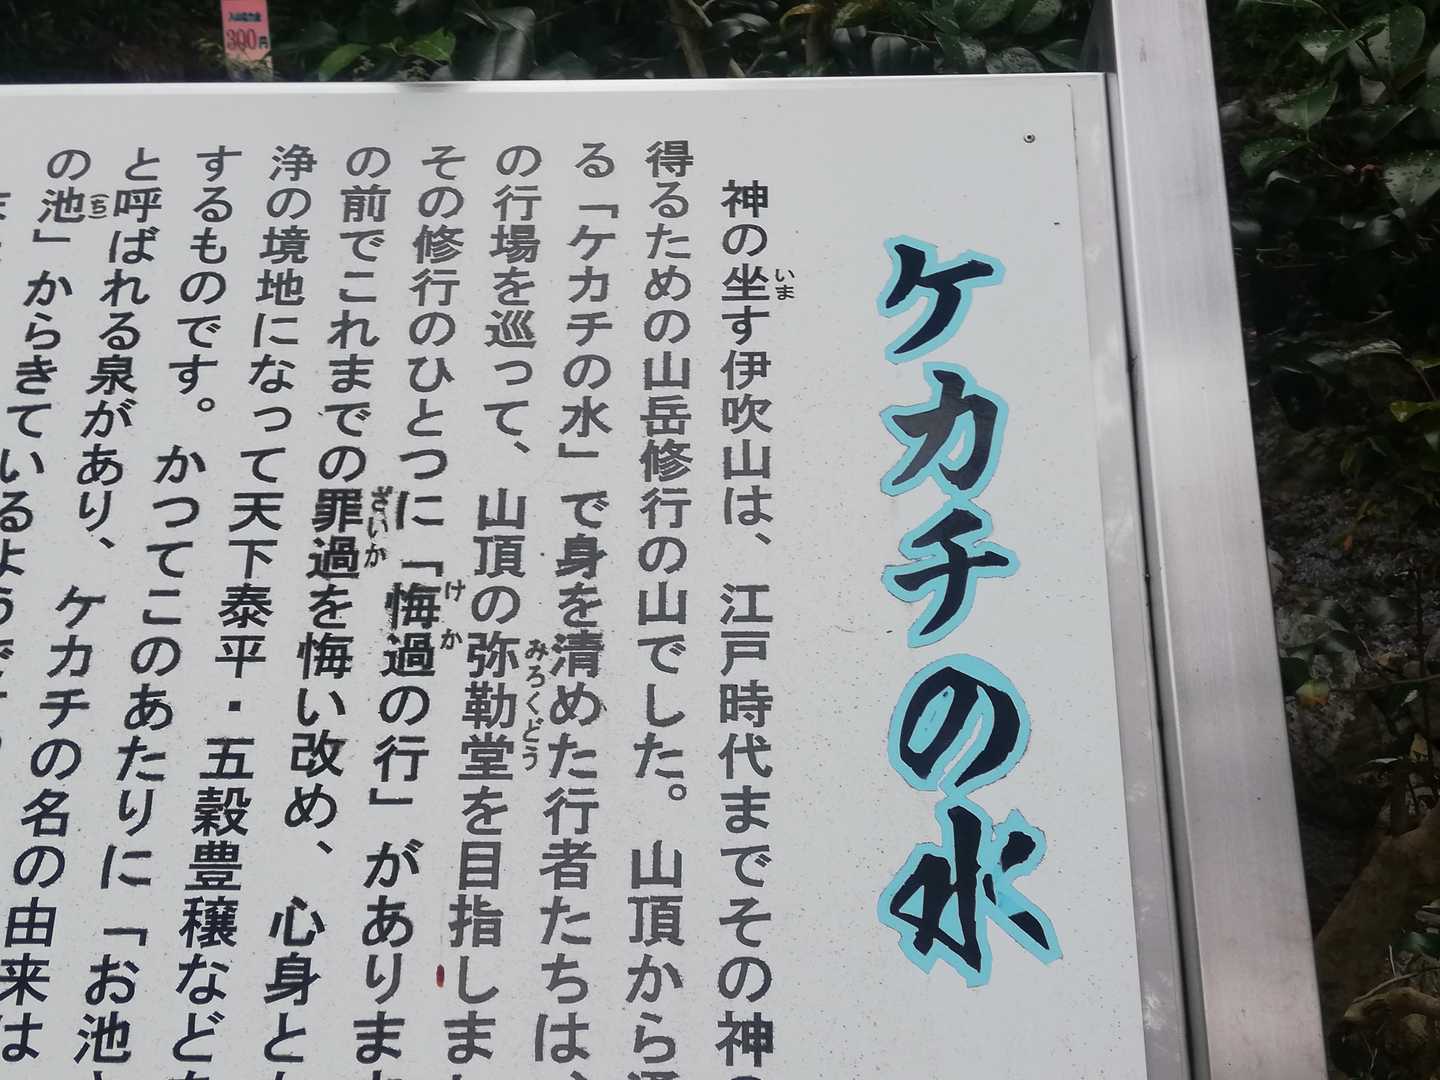 入山協力金
300円
ケカチの水
神の坐す伊吹山は、江戸時代までその神
いま
得るための山岳修行の山でした。山頂から
る「ケカチの水」で身を清めた行者たちは、
の行場を巡って、山頂の弥勒堂を目指しまし
みろくどう
その修行のひとつに「悔過の行」がありま
けか
の前でこれまでの罪過を悔い改め、心身と
ざいか
浄の境地になって天下泰平・五穀豊穣など
するものです。かつてこのあたりに「お池
と呼ばれる泉があり、ケカチの名の由来は
の池」からきているようです
ち